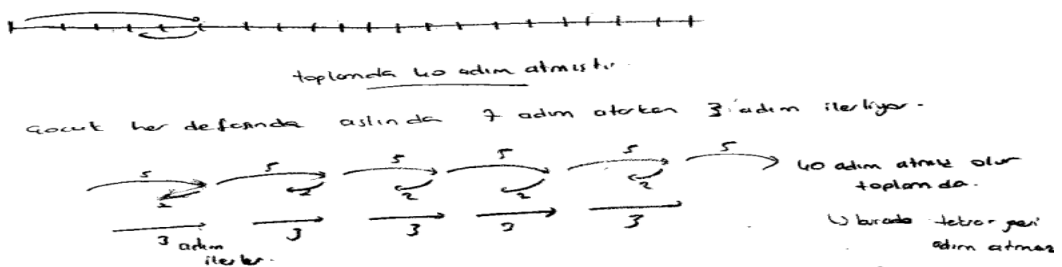 toplamda 40 adım atmıştır.
Çocuk her defasında aslında 7 adım atarken 3 adım ilerliyor.
5 5 5 5 5 5
40 adım atmış olur
2 2 2 2 2
toplamda.
3 adım 3 3 3 3
ilerler.
burada tekrar geri
adım atmaz